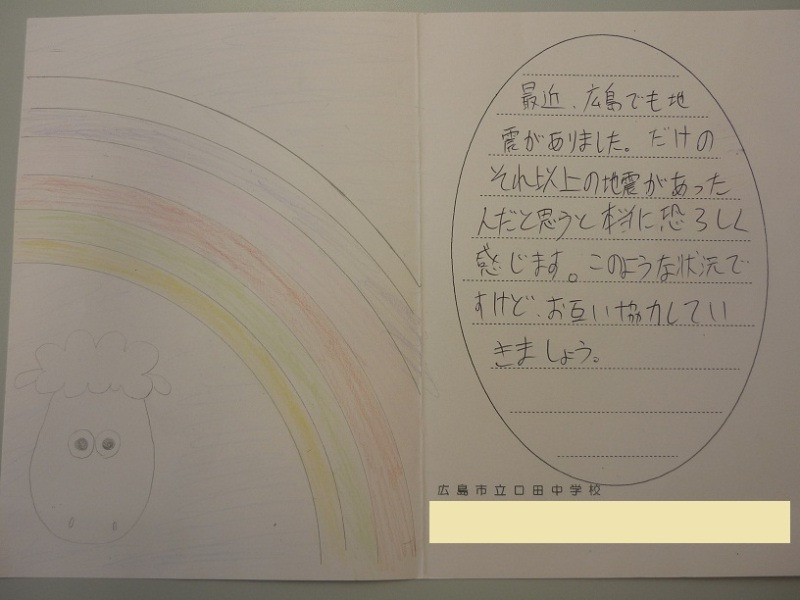 最近、広島でも地
震がありました。だけの
それ以上の地震があった
んだと思うと本当に恐ろしく
感じます。このような状況で
すけど、お互い協力してい
きましょう。
広島市立口田中学校